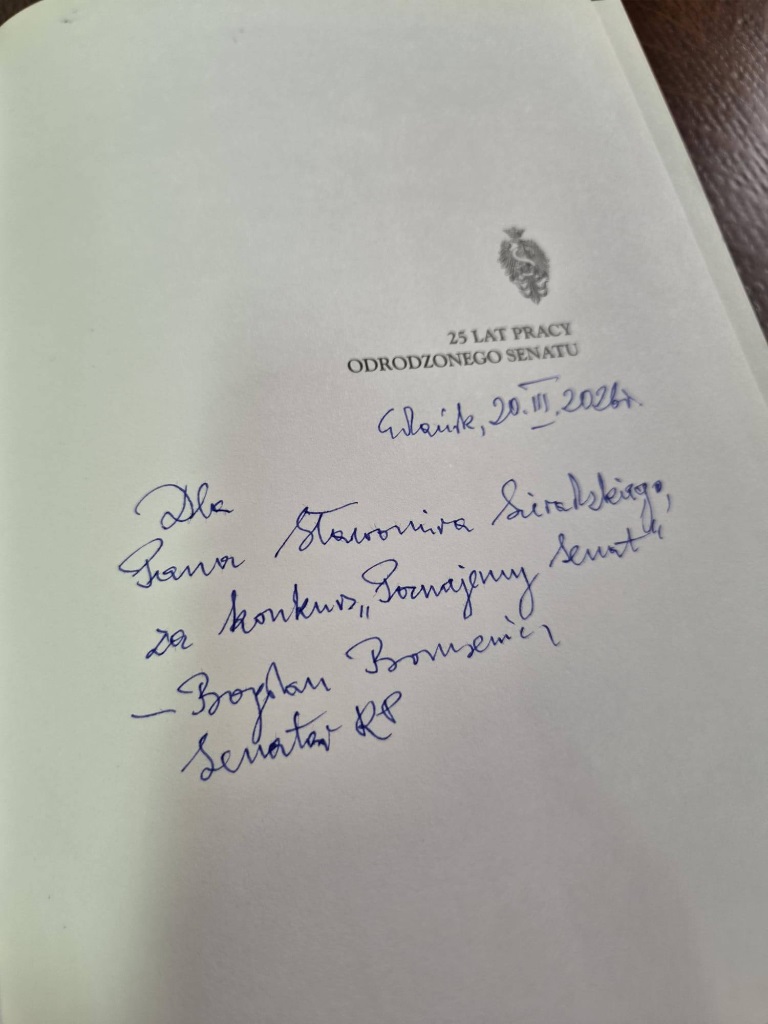 25 LAT PRACY
ODRODZONEGO SENATU
Gdańsk, 20.III.2026r.
Dla
Pana Sławomira Sieralskiego,
za konkurs „Poznajemy Senat"
— Bogdan Borusewicz
Senator RP